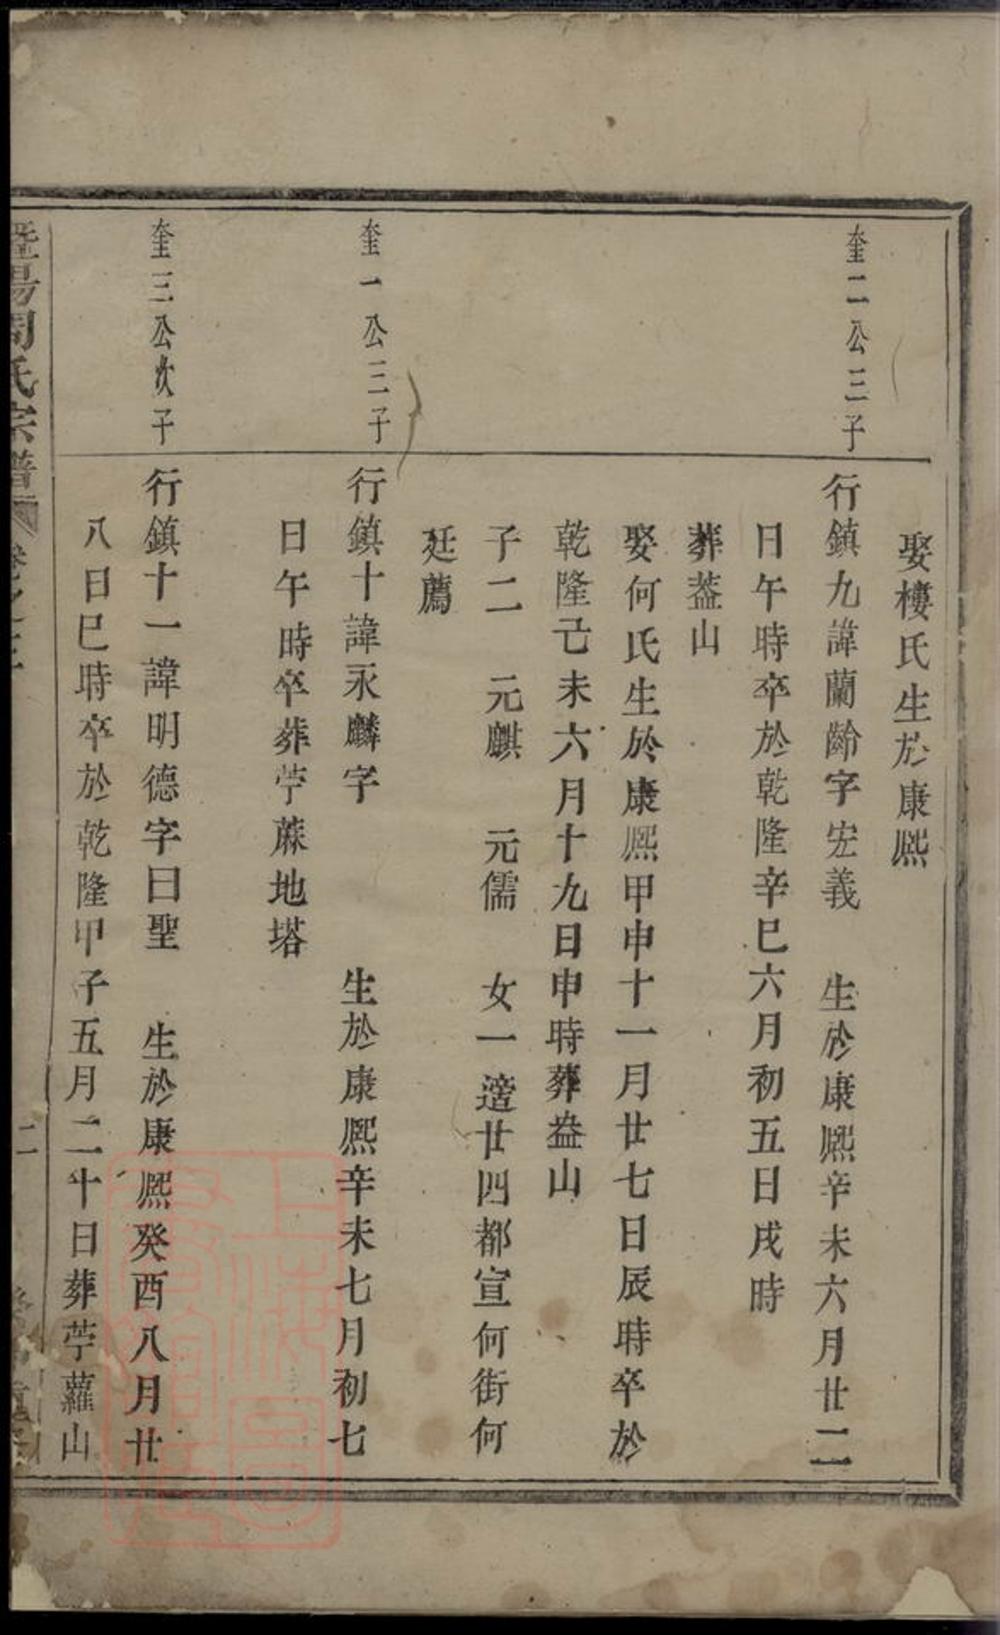 娶樓氏生於康熙
奎二公三子
行鎮九諱蘭齡字宏義 生於康熙辛未六月廿二
日午時卒於乾隆辛巳六月初五日戌時
葬蓋山
娶何氏生於康熙甲申十一月廿七日辰時卒於
乾隆己未六月十九日申時葬盖山
子二 元麒 元儒 女一適廿四都宣何街何
廷薦
奎一公三子
行鎮十諱永麟字 生於康熙辛未七月初七
日午時卒葬苧蔴地塔
奎三公次子
行鎮十一諱明德字曰聖 生於康熙癸酉八月廿
八日巳時卒於乾隆甲子五月二十日葬苧蘿山
暨陽周氏宗譜 卷之三 二
上海圖書館藏